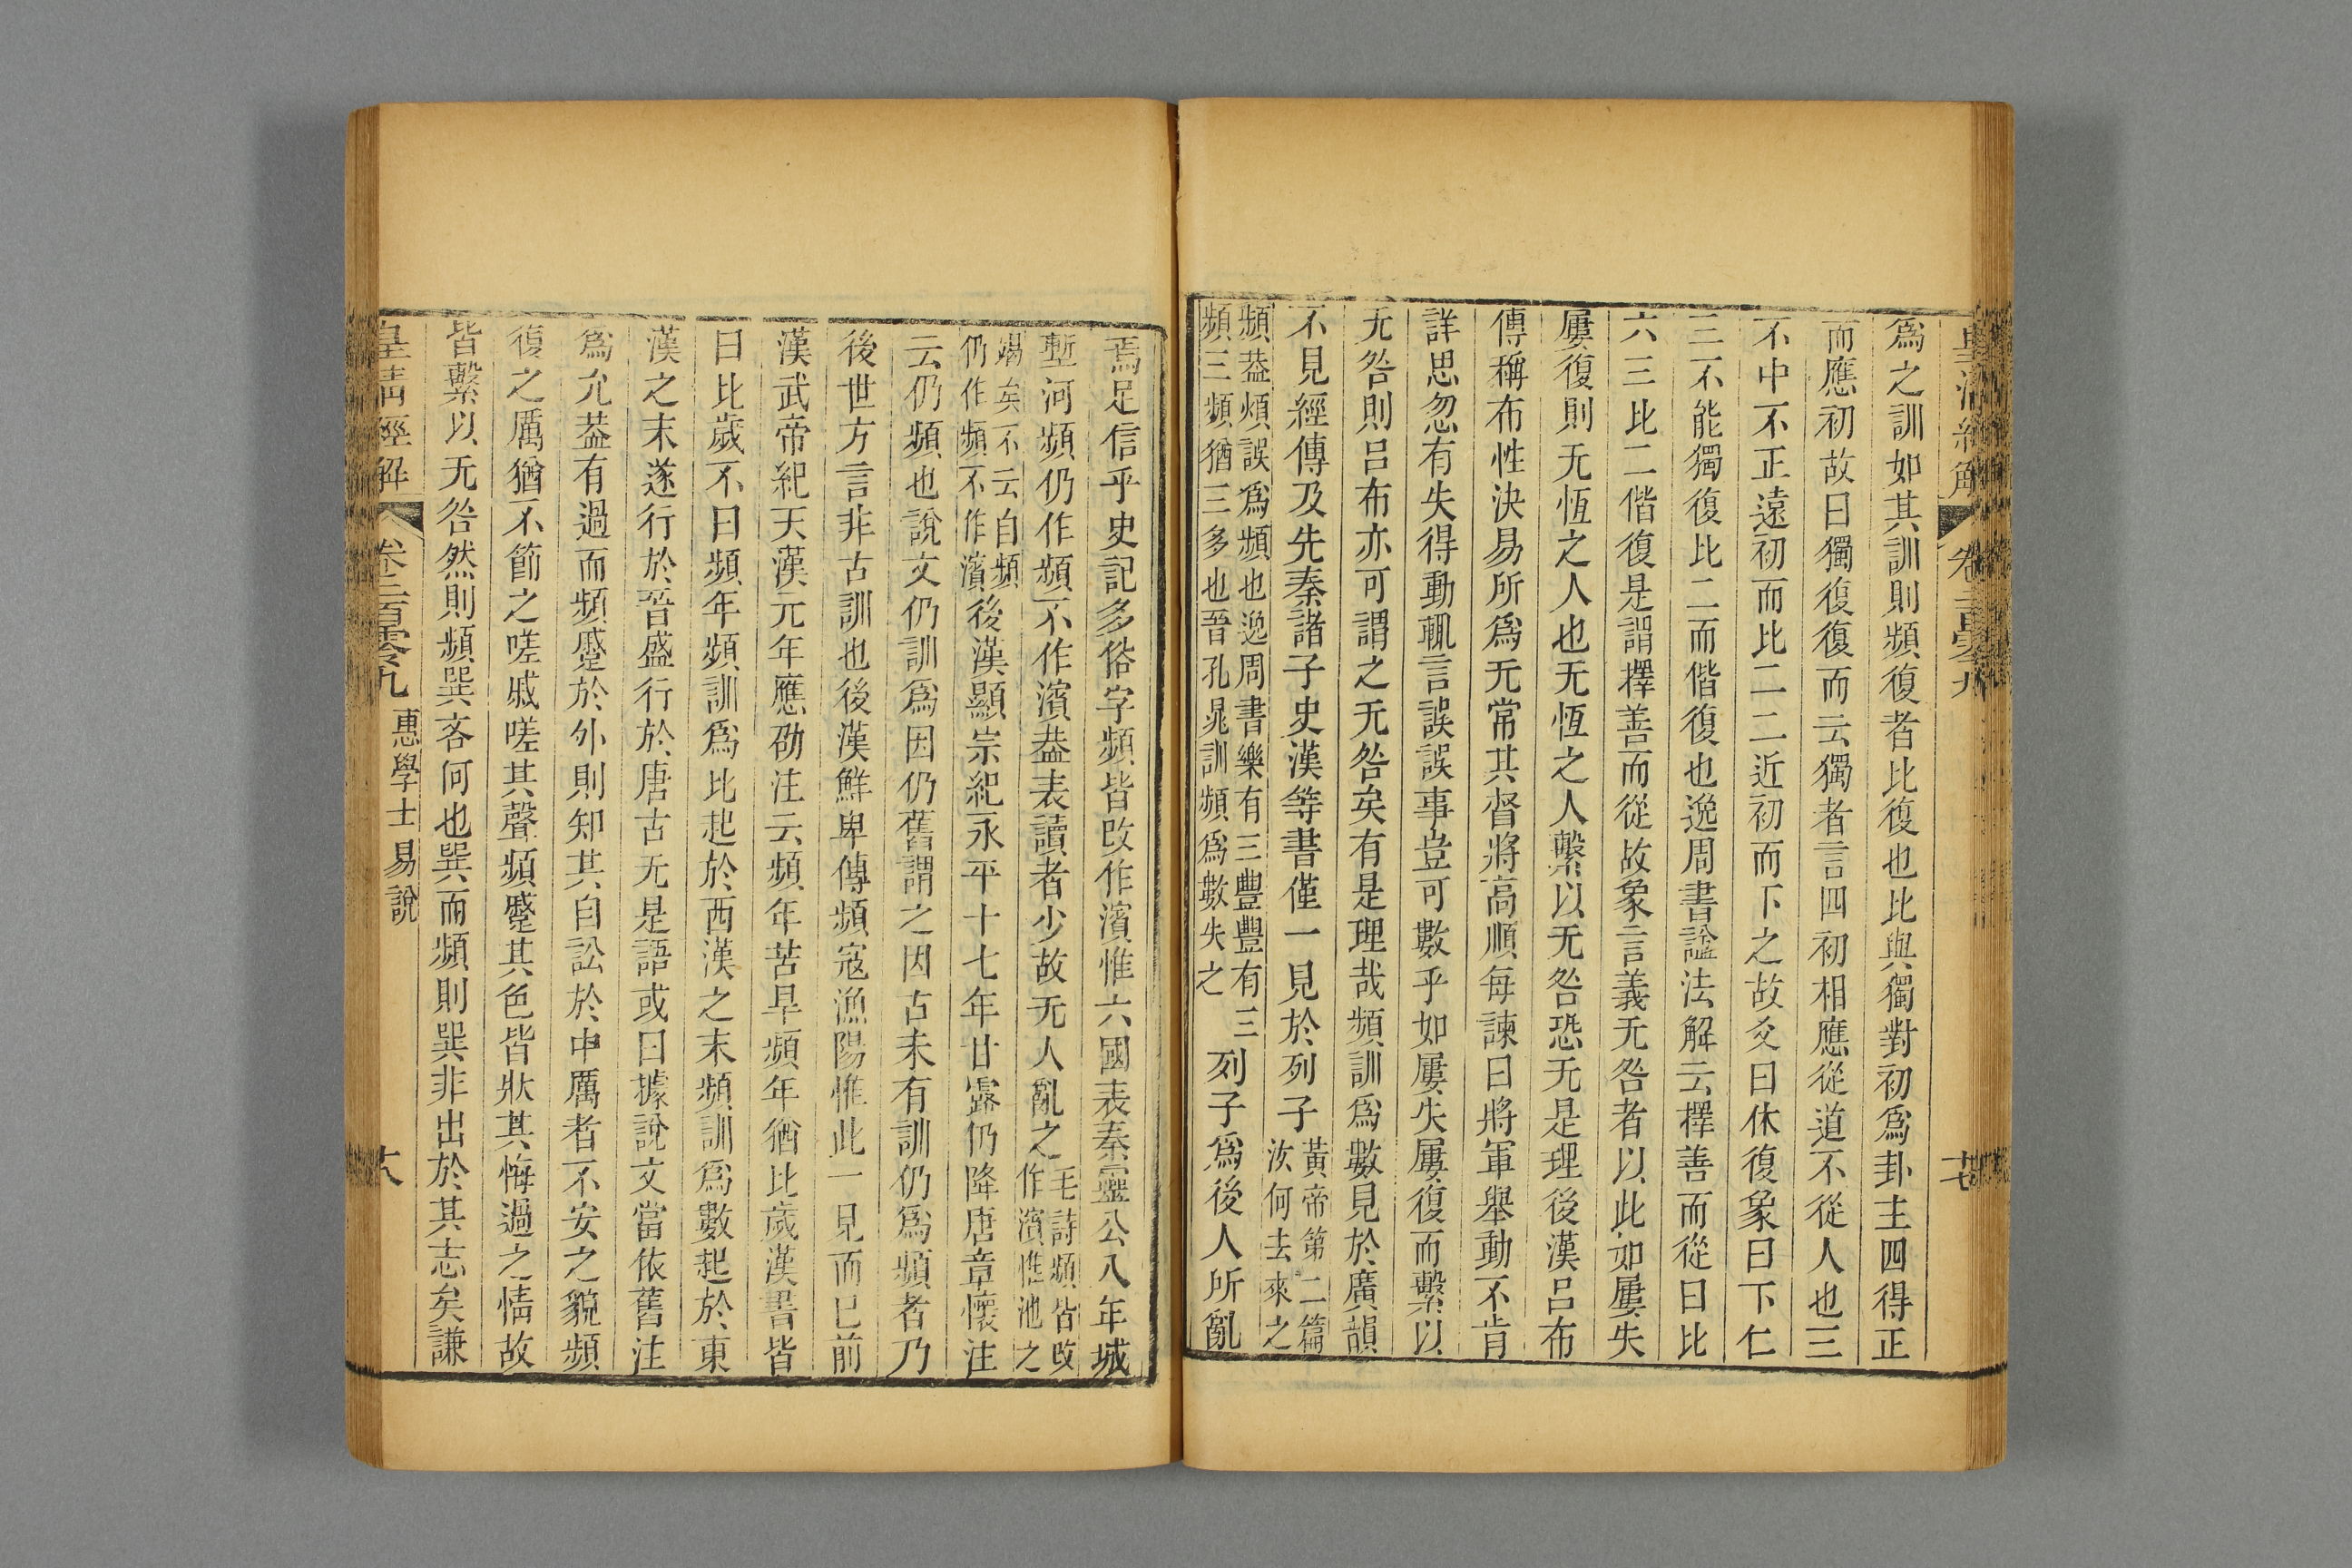 皇清經解 卷二百零九 十七
爲之訓如其訓則頻復者比復也比與獨對初爲卦主四得正
而應初故曰獨復復而云獨者言四初相應從道不從人也三
不中不正遠初而比二二近初而下之故爻曰休復象曰下仁
三不能獨復比二而偕復也逸周書諡法解云擇善而從曰比
六三比二偕復是謂擇善而從故象言義无咎者以此如屢失
屢復則无恆之人也无恆之人繫以无咎恐无是理後漢呂布
傳稱布性決易所爲无常其督將高順每諫曰將軍舉動不肯
詳思忽有失得動輒言誤誤事豈可數乎如屢失屢復而繫以
无咎則呂布亦可謂之无咎矣有是理哉頻訓爲數見於廣韻
不見經傳及先秦諸子史漢等書僅一見於列子黃帝第二篇汝何去來之
頻葢煩誤爲頻也逸周書樂有三豐豐有三頻三頻猶三多也晉孔晁訓頻爲數失之列子爲後人所亂
焉足信乎史記多俗字頻皆改作濱惟六國表秦靈公八年城
塹河頻仍作頻不作濱葢表讀者少故无人亂之毛詩頻皆改作濱惟池之
竭矣不云自頻仍作頻不作濱後漢顯宗紀永平十七年甘露仍降唐章懷注
云仍頻也說文仍訓爲因仍舊謂之因古未有訓仍爲頻者乃
後世方言非古訓也後漢鮮卑傳頻寇漁陽惟此一見而已前
漢武帝紀天漢元年應劭注云頻年苦旱頻年猶比歲漢書皆
曰比歲不曰頻年頻訓爲比起於西漢之末頻訓爲數起於東
漢之末遂行於晉盛行於唐古无是語或曰據說文當依舊注
爲允葢有過而頻蹙於外則知其自訟於中厲者不安之貌頻
復之厲猶不節之嗟戚嗟其聲頻蹙其色皆狀其悔過之情故
皆繫以无咎然則頻巽吝何也巽而頻則巽非出於其志矣謙
皇清經解 卷二百零九 惠學士易說 十八